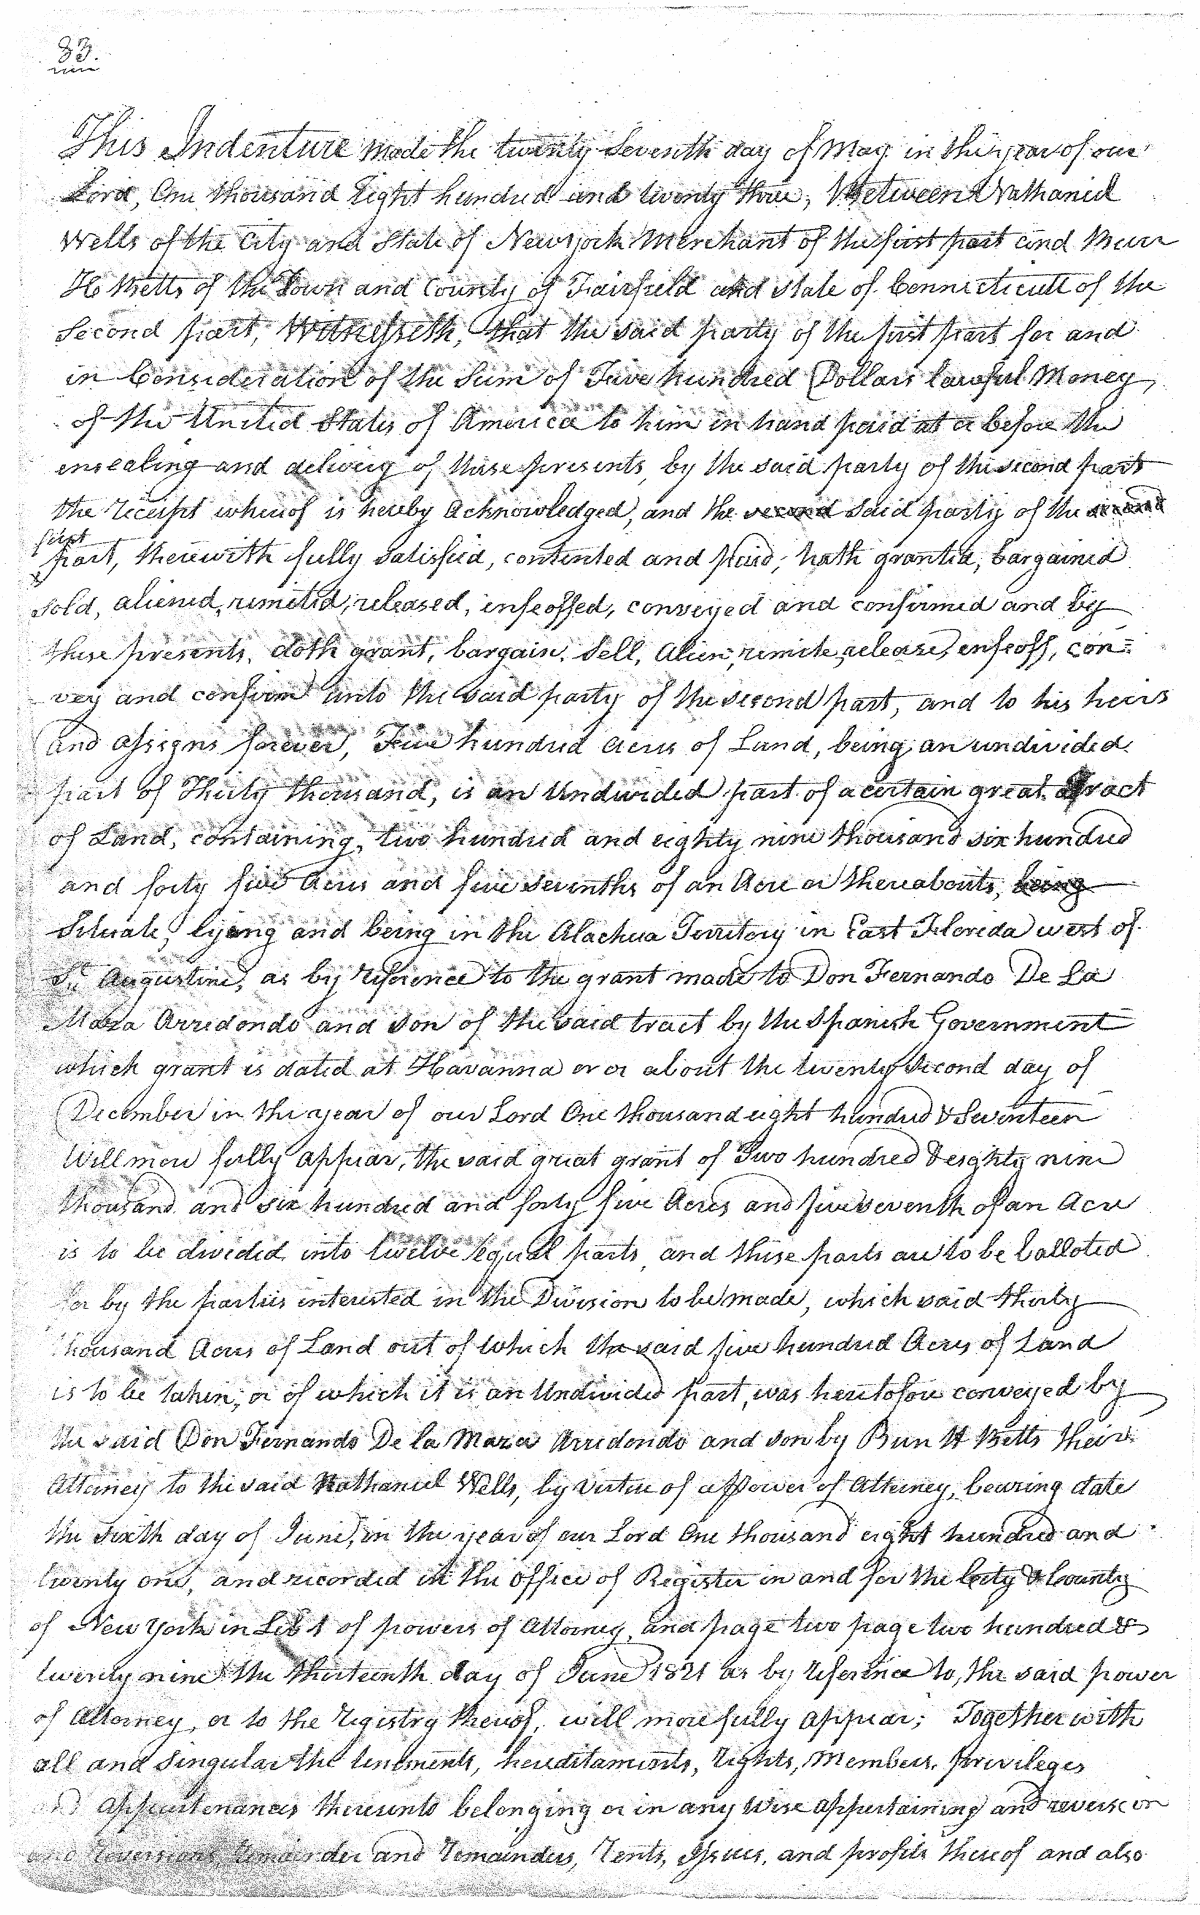 83.
This Indenture made the twenty Seventh day of May in the year of our
Lord, One thousand Eight hundred and twenty three, Between Nathaniel
Wells of the City and State of New York Merchant of the first part and Burr
H Betts of the Town and County of Fairfield and state of Connecticutt of the
Second part, Witnesseth, that the said party of the first part for and
in Consideration of the Sum of Five hundred Dollars lawful Money,
of the United States of America to him in hand paid at or before the
ensealing and delivery of these presents, by the said party of the second part
the receipt whereof is hereby Acknowledged, and the second said party of the second
first
part, therewith fully satisfied, contented and paid, hath granted, bargained
sold, aliened, remitted, released, enfeoffed, conveyed and confirmed and by
these presents, doth grant, bargain, Sell, Alien, remite, release, enfeoff, con=
vey and confirm unto the said party of the second part, and to his heirs
and assigns forever, Five hundred acres of Land, being an undivided
part of Thirty thousand, is an Undivided part of a certain great Tract
of Land, containing, two hundred and eighty nine thousand six hundred
and forty five Acres and five sevenths of an Acre or thereabouts, being
Situate, lyiang and being in the Alachua Territory in East Floreda west of
St. Augustine, as by reference to the grant made to Don Fernando De La
Maza Arredondo and son of the said tract by the Spanish Government
which grant is dated at Havanna on or about the twenty second day of
December in the year of our Lord One thousand eight hundred & Seventeen
Will more fully appear, the said great grant of Two hundred & eighty nine
thousand and six hundred and forty five Acres and five seventh of an Acre
is to be divided into twelve equal parts, and these parts are to be balloted
for by the parties interested in the Division to be made, which said thirty
thousand Acres of Land out of which the said five hundred Acres of Land
is to be taken, or of which it is an Undivided part, was heretofore conveyed by
the said Don Fernando De la Maza Arredondo and son by Burr H Betts their
Attorney to the said Nathaniel Wells, by virtue of a Power of Attorney, bearing date
the sixth day of June, in the year of our Lord One thousand eight hundred and
twenty one, and recorded in the office of Register in and for the City & County
of New York in Lib 1 of powers of Attorney, and page two page two hundred &
twenty nine the thirteenth day of June 1821 as by reference to, the said power
of Attorney, or to the registry thereof, will more fully appear; Together with
all and Singular the tenements, hereditaments, rights, members, privileges
and appurtenances thereunto belonging or in any wise appertaining and reversion
and reversions, remainder and remainders, rents, Issues, and profits thereof and also